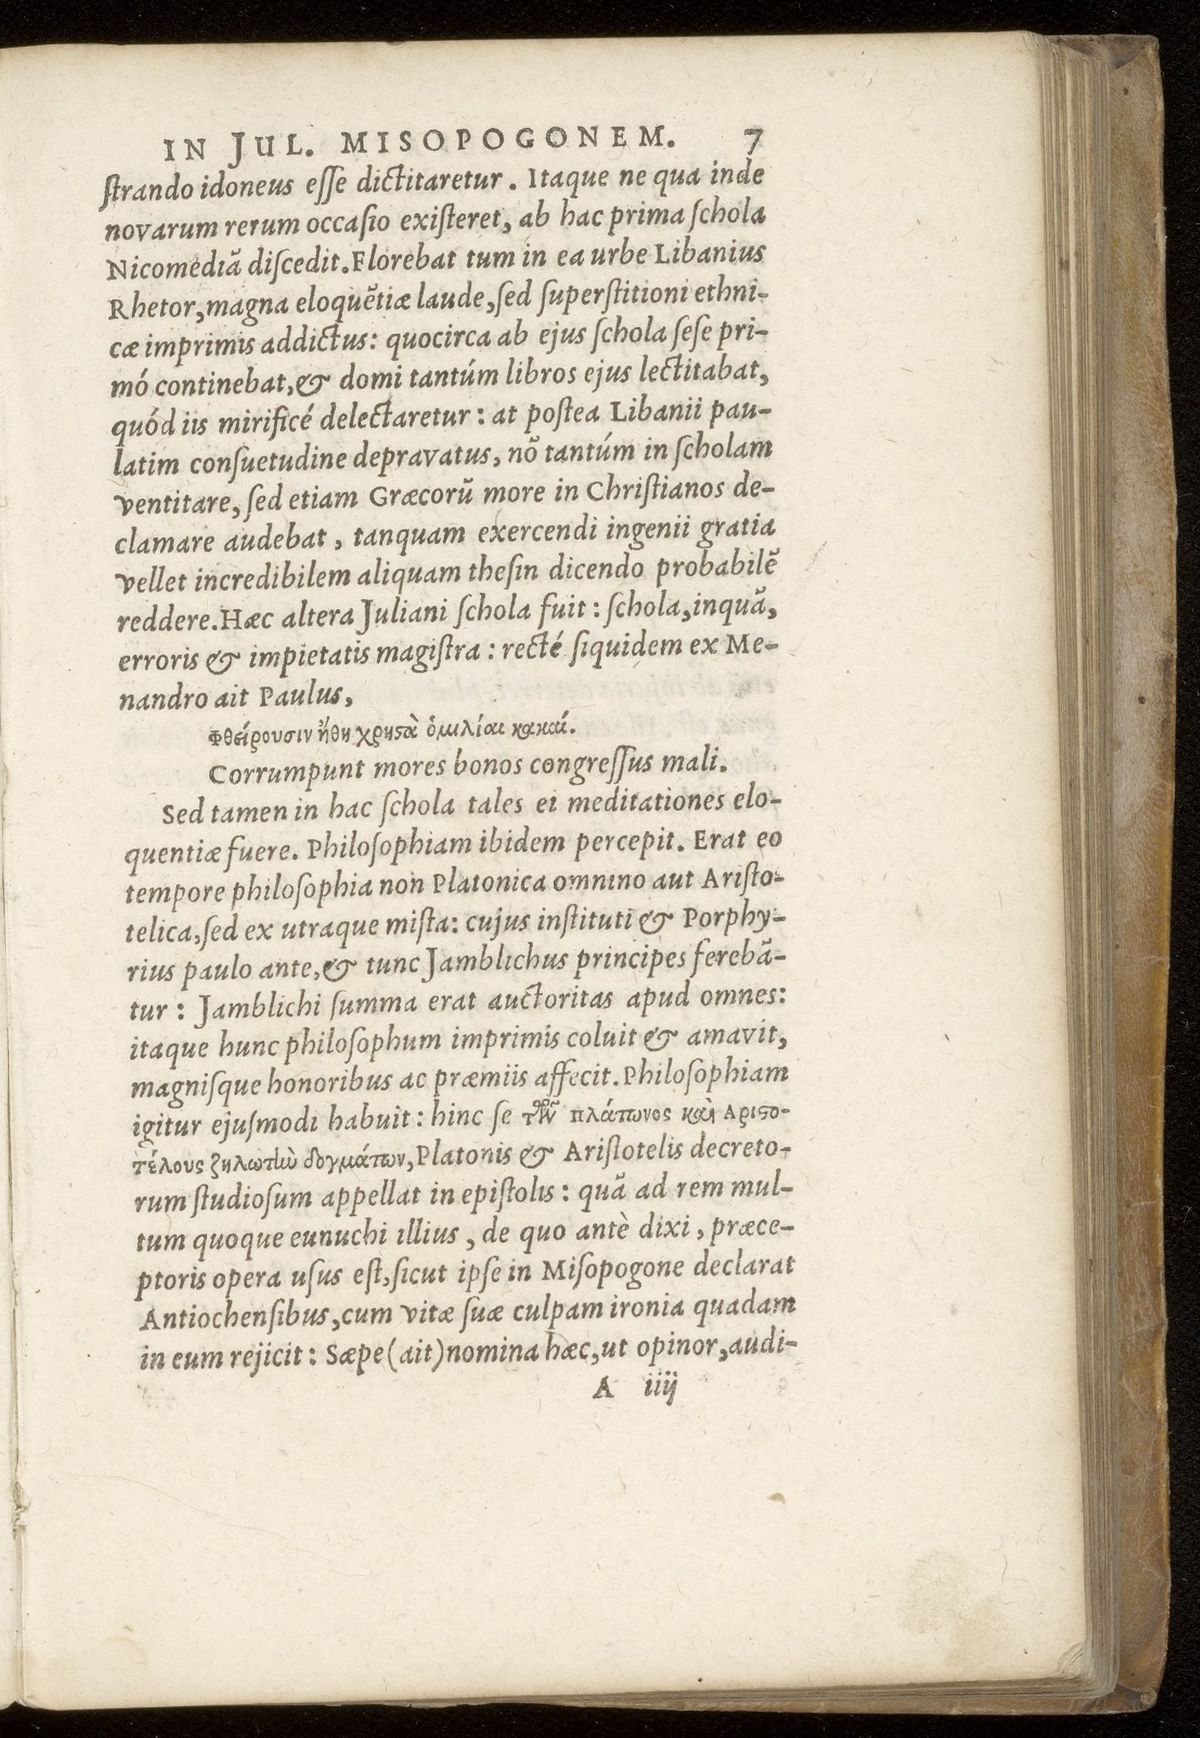 IN JUL. MISOPOGONEM. 7
ſtrando idoneus eſſe dictitaretur. Itaque ne qua inde
novarum rerum occaſio exiſteret, ab hac prima ſchola
Nicomediā diſcedit. Florebat tum in ea urbe Libanius
Rhetor, magna eloquētiæ laude, ſed ſuperſtitioni ethni-
cæ imprimis addictus: quocirca ab ejus ſchola ſeſe pri-
mó continebat, & domi tantúm libros ejus lectitabat,
quód iis mirificé delectaretur: at poſtea Libanii pau-
latim conſuetudine depravatus, nō tantúm in ſcholam
ventitare, ſed etiam Græcorū more in Chriſtianos de-
clamare audebat, tanquam exercendi ingenii gratia
vellet incredibilem aliquam theſin dicendo probabilē
reddere. Hæc altera Juliani ſchola fuit: ſchola, inquā,
erroris & impietatis magiſtra: recté ſiquidem ex Me-
nandro ait Paulus,
Φθείρουσιν ἤθη χρηϛὰ ὁμιλίαι κακαί.
Corrumpunt mores bonos congreſſus mali.
Sed tamen in hac ſchola tales ei meditationes elo-
quentiæ fuere. Philoſophiam ibidem percepit. Erat eo
tempore philoſophia non Platonica omnino aut Ariſto-
telica, ſed ex utraque miſta: cujus inſtituti & Porphy-
rius paulo ante, & tunc Jamblichus principes ferebā-
tur: Jamblichi ſumma erat auctoritas apud omnes:
itaque hunc philoſophum imprimis coluit & amavit,
magniſque honoribus ac præmiis affecit. Philoſophiam
igitur ejuſmodi habuit: hinc ſe τῶν πλάτωνος καὶ Αριϛο-
τέλους ζηλωτὴν δογμάτων, Platonis & Ariſtotelis decreto-
rum ſtudioſum appellat in epiſtolis: quā ad rem mul-
tum quoque eunuchi illius, de quo antè dixi, præce-
ptoris opera uſus eſt, ſicut ipſe in Miſopogone declarat
Antiochenſibus, cum vitæ ſuæ culpam ironia quadam
in eum rejicit: Sæpe (ait) nomina hæc, ut opinor, audi-
A iiij